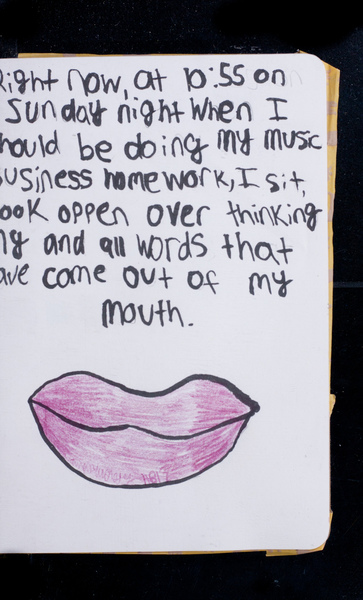 Right now, at 10:55 on
Sunday night when I
hould be doing my music
usiness homework, I sit,
ook oppen over thinking
ny and all words that
ave come out of my
mouth.